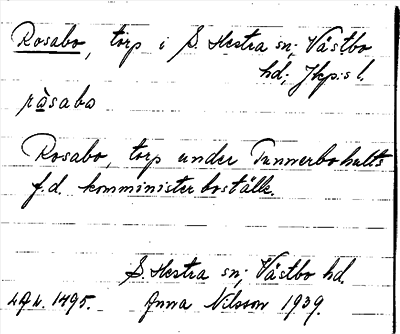 Rosabo, torp i S. Hestra sn; Västbo
hd; Jkp:s l.
ròsabo
Rosabo, torp under Tunnerbohults
f.d. komministerboställe.
S. Hestra sn; Västbo hd.
1495. Anna Nilsson 1939.